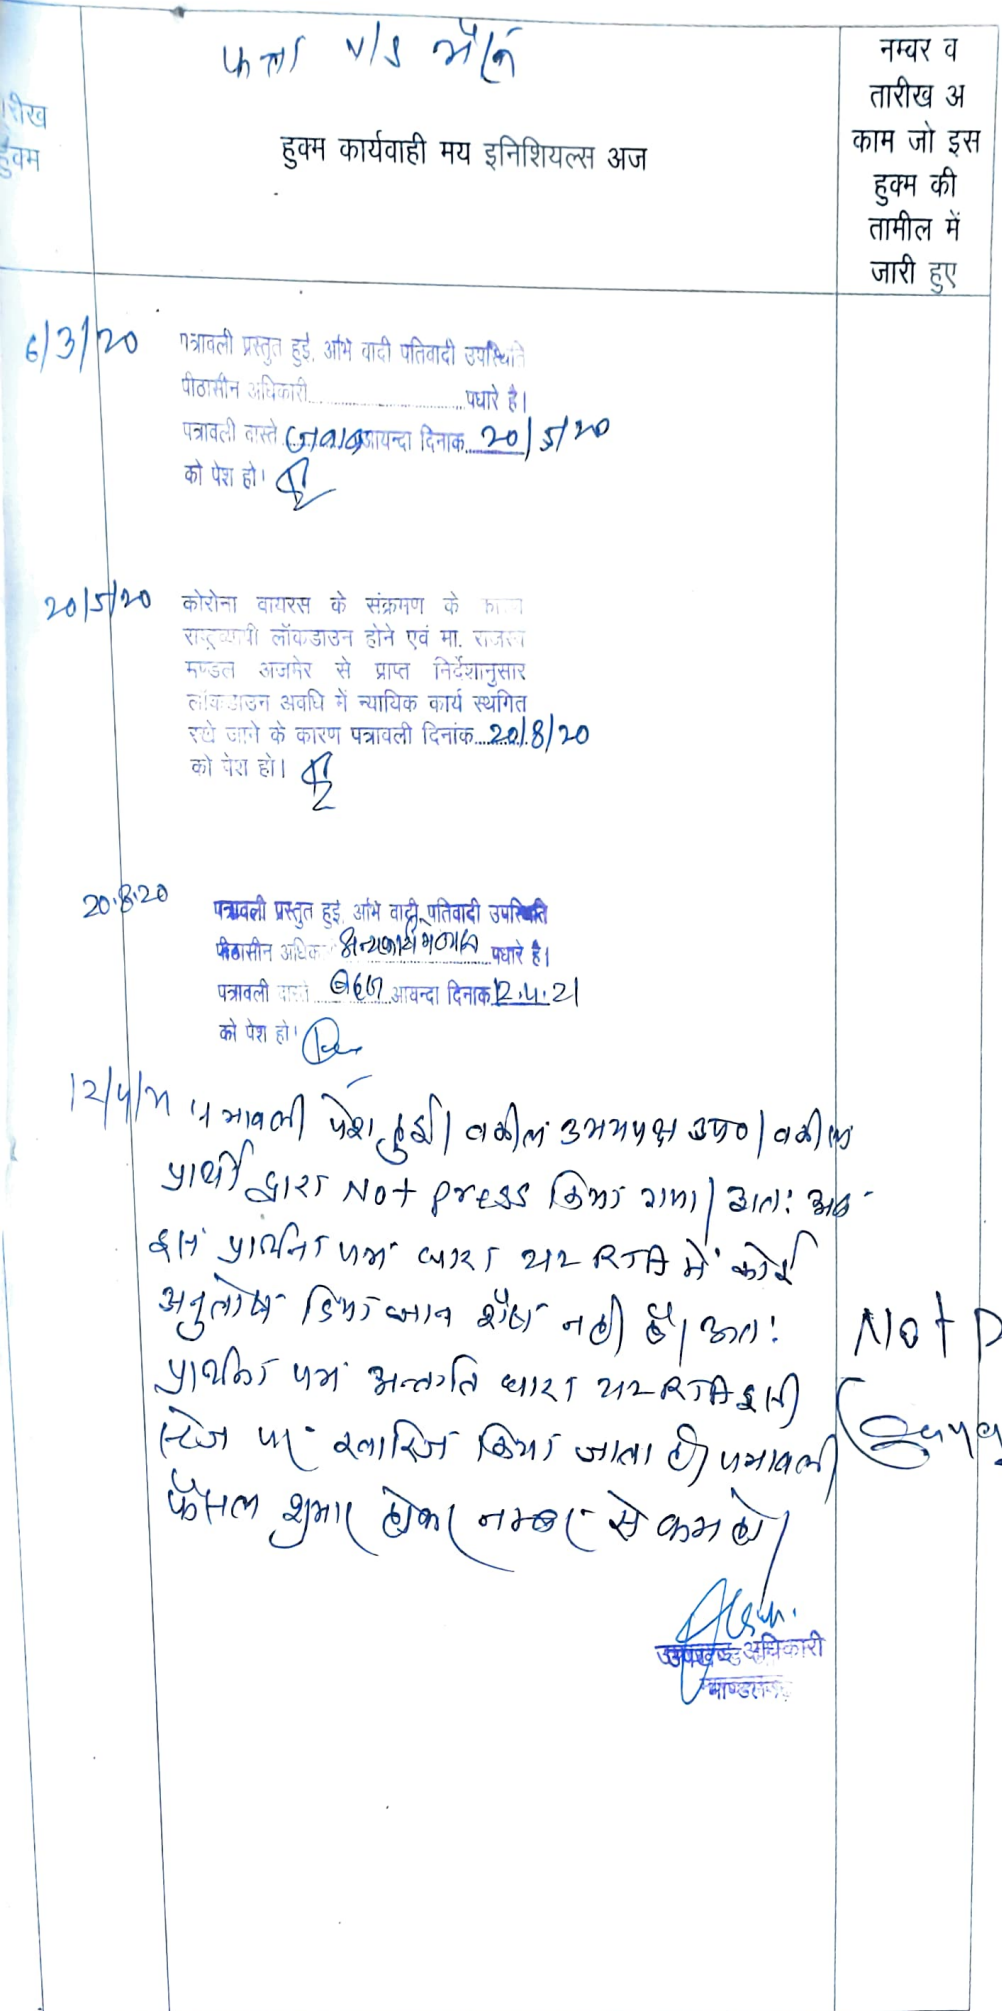 फत्ता v/s
रीख
हुक्म
हुक्म कार्यवाही मय इनिशियल्स अज
नम्बर व
तारीख अ
काम जो इस
हुक्म की
तामील में
जारी हुए
6/3/20
पत्रावली प्रस्तुत हुई, अभि वादी पतिवादी उपस्थिति
पीठासीन अधिकारी.......................पधारे है।
पत्रावली वास्ते जवाब आयन्दा दिनाक 20/5/20
को पेश हो।
20/5/20
कोरोना वायरस के संक्रमण के कारण
राष्ट्रव्यापी लॉकडाउन होने एवं मा. राजस्व
मण्डल अजमेर से प्राप्त निर्देशानुसार
लॉकडाउन अवधि में न्यायिक कार्य स्थगित
रखे जाने के कारण पत्रावली दिनांक 20/8/20
को पेश हो।
20.8.20
पत्रावली प्रस्तुत हुई, अभि वादी पतिवादी उपस्थिति
पीठासीन अधिक अन्य कार्य में व्यस्त पधारे है।
पत्रावली वास्ते बहस आयन्दा दिनाक 12.4.21
को पेश हो।
12/4/21 पत्रावली पेश हुई। वकील उभयपक्ष उप०। वकील
प्रार्थी द्वारा Not press किया गया। अतः अब
इस प्रार्थना पत्र धारा 212 RTA में कोई
अनुतोष दिया जाना शेष नही है। अतः
प्रार्थना पत्र अन्तर्गत धारा 212 RTA इसी
स्टेज पर खारिज किया जाता है। पत्रावली
फैसल शुमार होकर नम्बर से कम हो।
Not P
उपखण्ड अधिकारी
माण्डलगढ़